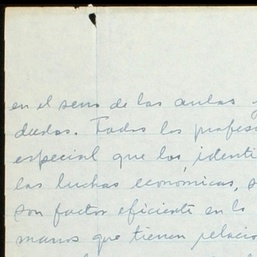 en el seno de las aulas y
dudas. Todos los profeso
especial que los identi
las luchas economicas, s
son factor eficiente en la
manos que tienen relacio